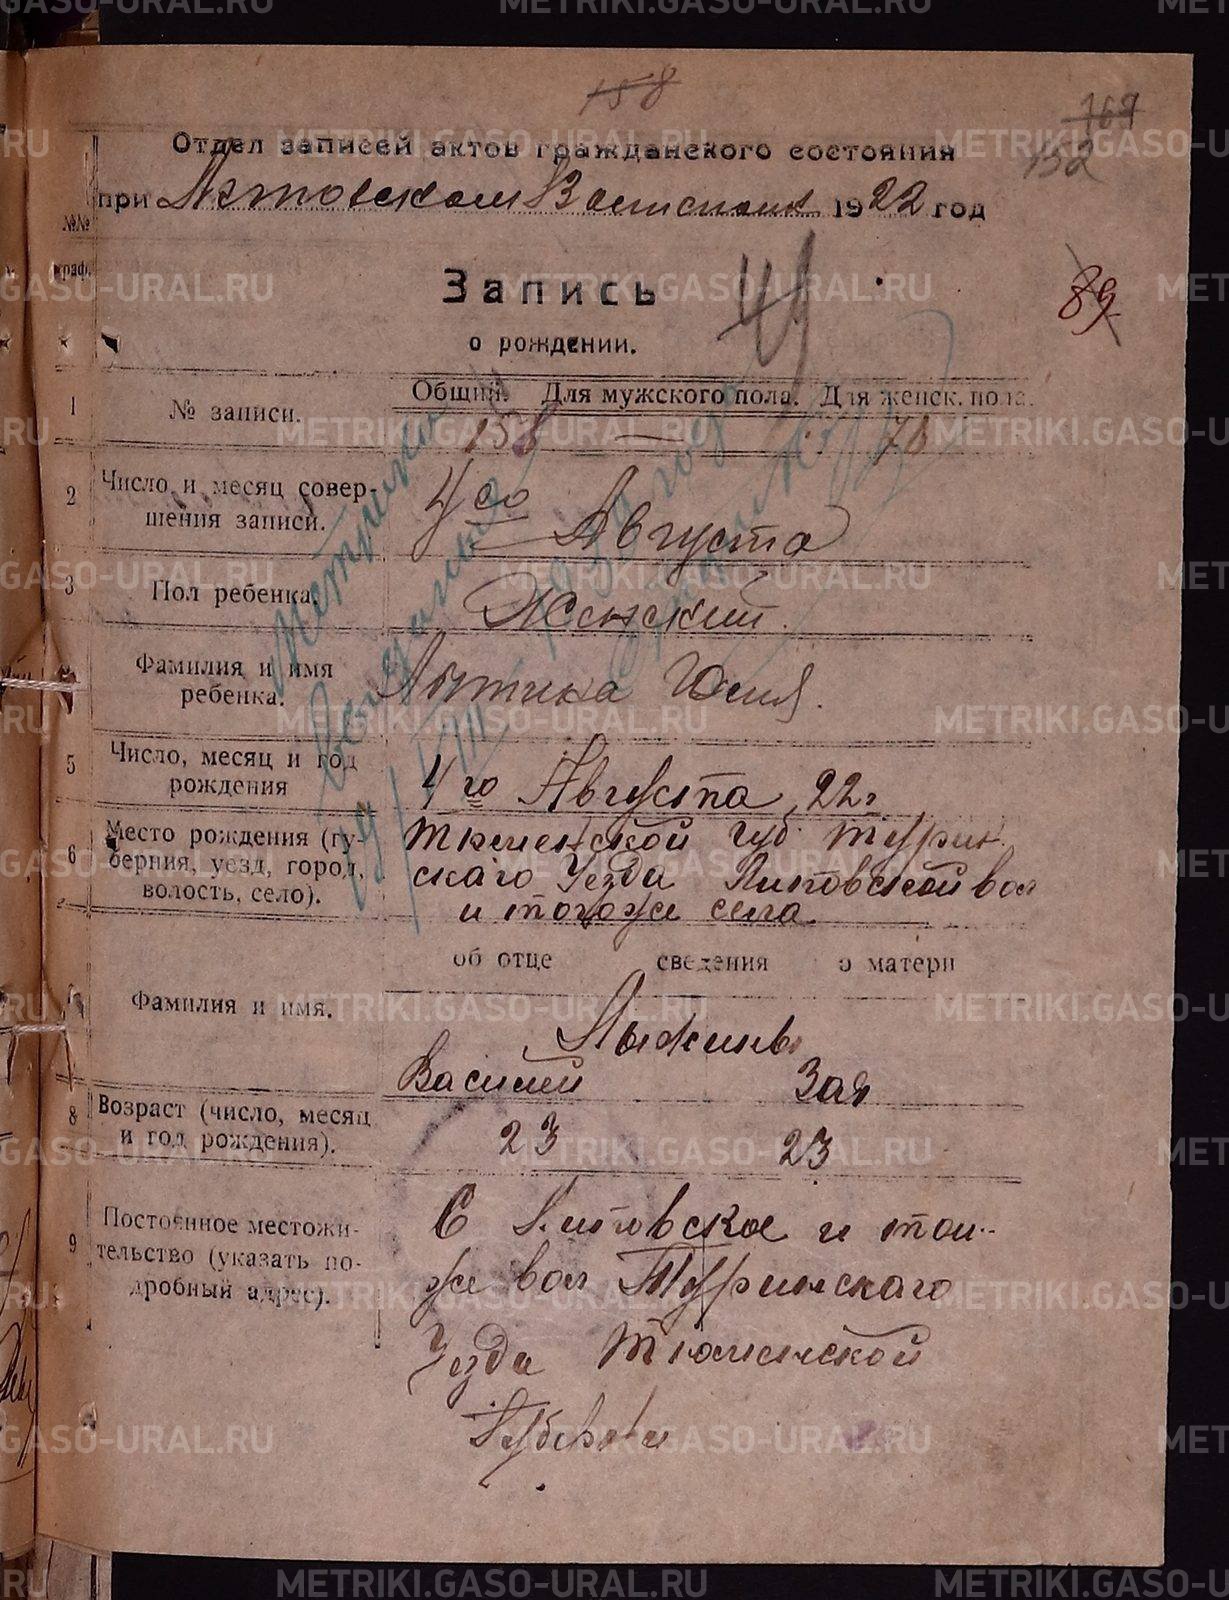 METRIKI.GASO-URAL.RU
158
169
Отдел записей актов гражданского состояния
152
при 1922 год
№№
граф.
Запись
49
89
о рождении.
Общий. Для мужского пола. Для женск. пола.
1 № записи. 158 — 78
2 Число и месяц совер-
шения записи.
4го Августа
3 Пол ребенка. Женский.
Фамилия и имя
ребенка.
Лыжина Юлия.
5 Число, месяц и год
рождения
4го Августа 22г
6 Место рождения (гу-
берния, уезд, город,
волость, село).
Тюменской губ. Турин
скаго Уезда Липовской вол
и тогоже села.
об отце сведения о матери
Фамилия и имя.
Лыжины
Василий Зоя
8 Возраст (число, месяц
и год рождения).
23 23
9 Постоянное местожи-
тельство (указать по-
дробный адрес).
С Липовское и той-
же вол Туринскаго
Уезда Тюменской
Губерни